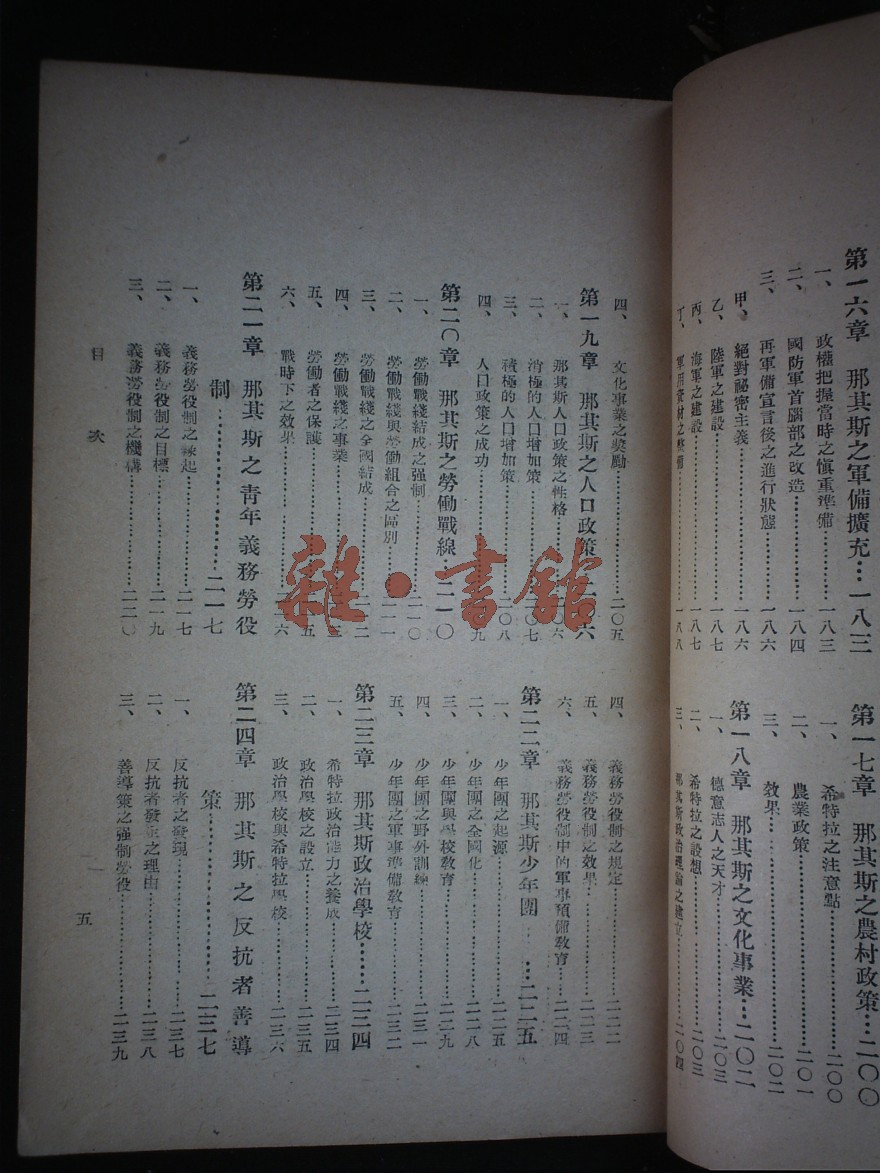 第一六章　那其斯之軍備擴充…一八三
一、　政權把握當時之慎重準備…一八三
二、　國防軍首腦部之改造…一八四
三、　再軍備宣言後之進行狀態…一八六
甲、　絕對祕密主義…一八六
乙、　陸軍之建設…一八七
丙、　海軍之建設…一八七
丁、　軍用資材之整備…一八八
第一七章　那其斯之農村政策…二〇〇
一、　希特拉之注意點…二〇〇
二、　農業政策…二〇一
三、　效果…二〇二
第一八章　那其斯之文化事業…二〇二
一、　德意志人之天才…二〇三
二、　希特拉之設想…二〇三
三、　那其斯政治理論之建立…二〇四
四、　文化事業之獎勵…二〇五
第一九章　那其斯之人口政策…二〇六
一、　那其斯人口政策之性格…二〇六
二、　消極的人口增加策…二〇七
三、　積極的人口增加策…二〇八
四、　人口政策之成功…九
第二〇章　那其斯之勞働戰線…二一〇
一、　勞働戰綫結成之强制…二一〇
二、　勞働戰綫與勞働組合之區別…二一一
三、　勞働戰綫之全國結成…二
四、　勞働戰綫之事業…三
五、　勞働者之保護…五
六、　戰時下之效果…六
第二一章　那其斯之青年義務勞役
制…二一七
一、　義務勞役制之緣起…二一七
二、　義務勞役制之目標…二一九
三、　義務勞役制之機構…二二〇
四、　義務勞役制之規定…二二二
五、　義務勞役制之效果…二二三
六、　義務勞役制中的軍事預備教育…二二四
第二二章　那其斯少年團…二二五
一、　少年團之起源…二二五
二、　少年團之全國化…二二八
三、　少年團與學校教育…二二九
四、　少年團之野外訓練…二三一
五、　少年團之軍事準備教育…二三二
第二三章　那其斯政治學校…二三四
一、　希特拉政治能力之養成…二三四
二、　政治學校之設立…二三五
三、　政治學校與希特拉學校…二三六
第二四章　那其斯之反抗者善導
策…二三七
一、　反抗者之發現…二三七
二、　反抗者發生之理由…二三八
三、　善導策之强制勞役…二三九
目　次
五
雜·書館